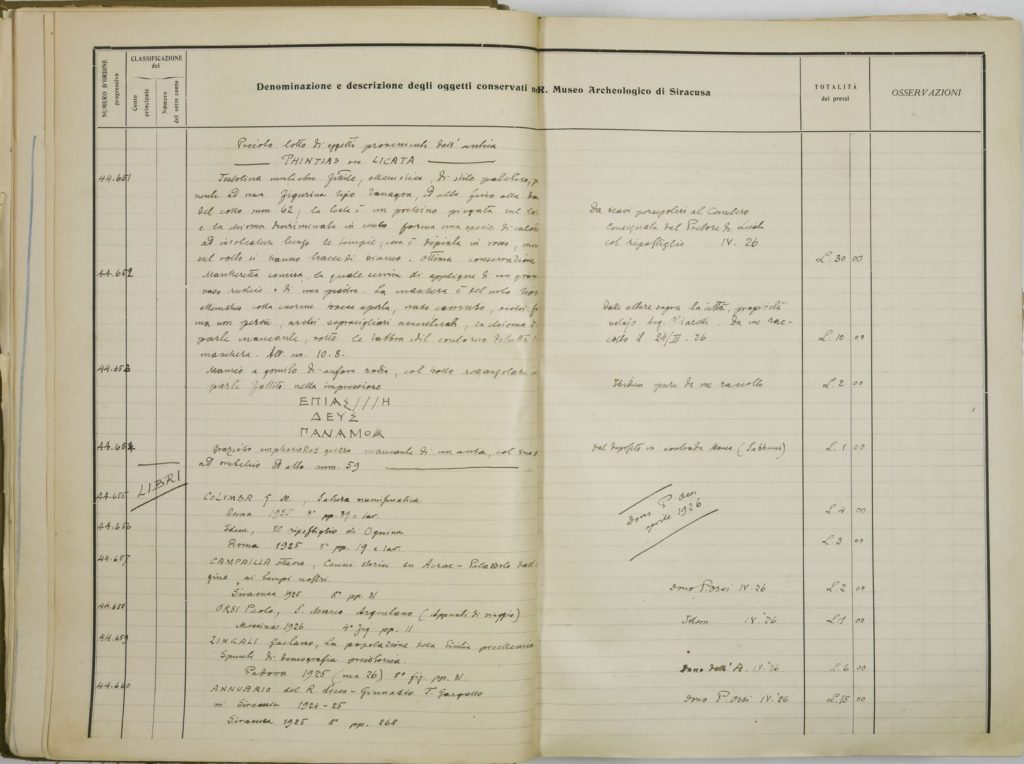 NUMERO D'ORDINE progressivo
CLASSIFICAZIONE del
Conto principale
Numero del sotto conto
Denominazione e descrizione degli oggetti conservati nel R. Museo Archeologico di Siracusa
TOTALITÀ dei prezzi
OSSERVAZIONI
Piccolo lotto di oggetti provenienti dall'antica
PHINTIAS ora LICATA
44.651
Testolina muliebre fittile, ellenistica, di stile
ad una figurina tipo Tanagra, ed alta fino alla
del collo mm. 62; la testa è un pochino piegata sul
e la chioma discriminata in forma una specie di
ad lungo le tempie, essa è dipinta in rosso,
sul volto si hanno tracce di bianco. Ottima conservazione
Da scavi al Cimitero
Consegnata dal Pretore di Licata
col ripostiglio IV. 26
L. 30 00
44.652
Mascheretta comica, la quale serviva di applique di un
vaso o di una. La maschera è del solito tipo
colla enorme bocca aperta, naso camuso, occhi
ma non, archi sopraccigliari, la chioma
parte mancante, rotto le labbra ed il contorno di tutta
maschera. Alt. cm. 10.8.
Dalle alture sopra la città, proprietà
notajo Ang. Da me rac-
colto l. 24/III. 26
L. 10 00
44.653
Manico a gomito di anfora rodia, col bollo rettangolare in
parte fallito nella impressione
ΕΠΙΑΣ///Η
ΔΕΥΣ
ΠΑΝΑΜΟ
Ibidem pure da me raccolto
L. 2 00
44.654
Grazioso grezzo mancante di un'ansa, col
ad ed alto mm. 59
dal deposito in contrada
L. 1 00
LIBRI
44.655
COLUMBA G. M., numismatica
Roma 1925 8° pp. e tav.
Dono P. Orsi
aprile 1926
L. 4 00
44.656
Idem, Il ripostiglio di Ognina
Roma 1925 8° pp. 19 e tav.
L. 3 00
44.657
CAMPAILLA, Cenni storici su Acrae - Palazzolo dall'
gine, ai tempi nostri.
Siracusa 1925 8° pp. 31
Dono P. Orsi IV. 26
L. 2 00
44.658
ORSI Paolo, S. Marco Argentano (Appunti di viaggio)
Messina 1926 4° fig. pp. 11
Idem IV. 26
L. 1 00
44.659
ZINGALI Gaetano, la popolazione della Sicilia preellenica
Spunti di demografia preistorica.
Padova 1925 (ma 26) 8° fig. pp. 31
Dono dell'A. IV. 26
L. 6 00
44.660
ANNUARIO del R. Liceo-Ginnasio T. Gargallo
in Siracusa 1924-25
Siracusa 1925 8° pp. 268
Dono P. Orsi IV. 26
L. 15 00